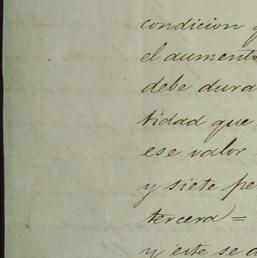 condicion y
el aument
debe dura
tidad que
ese valor
y siete pe
tercera =
y este se a